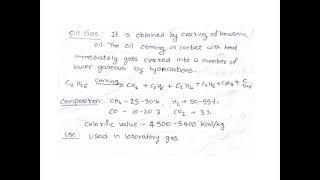 Oil Gas: It is obtained by cracking of kerosene
oil. The oil coming in contact with heat
immediately gets cracked into a number of
lower gaseous by hydrocarbons.
cracking
CH4 - 25-30% H2 - 50-55%
composition:-
CO - 10-20% CO2 - 3%
calorific value :- 4500-5400 Kcal/kg
use: Used in laboratory gas.